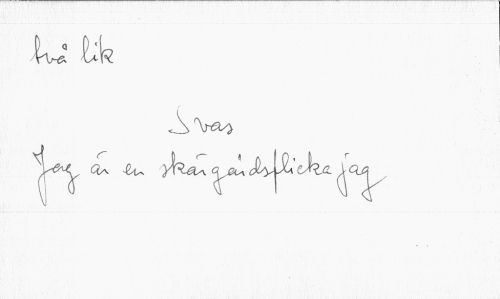 två lik
Svas
Jag är en skärgårdsflicka jag